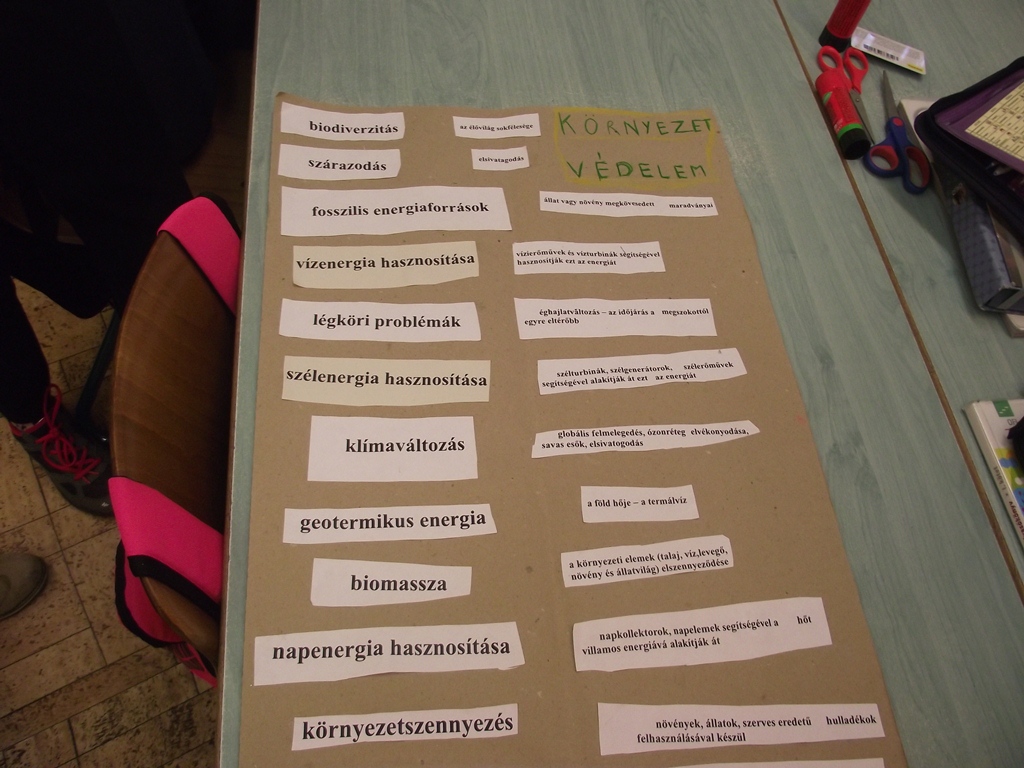 KÖRNYEZET
VÉDELEM
biodiverzitás
az élővilág sokfélesége
szárazodás
elsivatagodás
fosszilis energiaforrások
állat vagy növény megkövesedett maradványai
vízenergia hasznosítása
vízierőművek és vízturbinák segítségével
hasznosítják ezt az energiát
légköri problémák
éghajlatváltozás – az időjárás a megszokottól
egyre eltérőbb
szélenergia hasznosítása
szélturbinák, szélgenerátorok, szélerőművek
segítségével alakítják át ezt az energiát
klímaváltozás
globális felmelegedés, ózonréteg elvékonyodása,
savas esők, elsivatogodás
geotermikus energia
a föld hője – a termálvíz
biomassza
a környezeti elemek (talaj, víz,levegő,
növény és állatvilág) elszennyeződése
napenergia hasznosítása
napkollektorok, napelemek segítségével a hőt
villamos energiává alakítják át
környezetszennyezés
növények, állatok, szerves eredetű hulladékok
felhasználásával készül